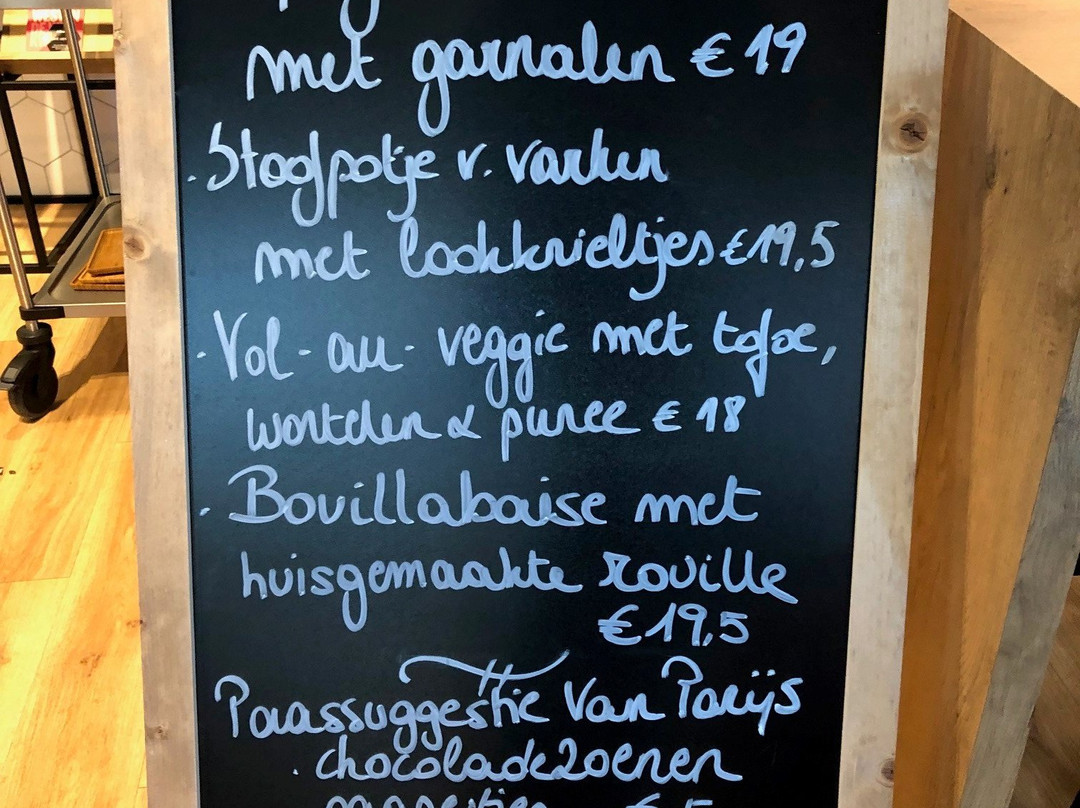 met garnalen € 19
. Stoofpotje v. varken
met lookkrieltjes €19,5
. Vol - au - veggie met tofoe,
wortelen & puree € 18
. Bouillabaise met
huisgemaakte rouille
€19,5
Paassuggestie Van Parijs
. chocoladezoenen